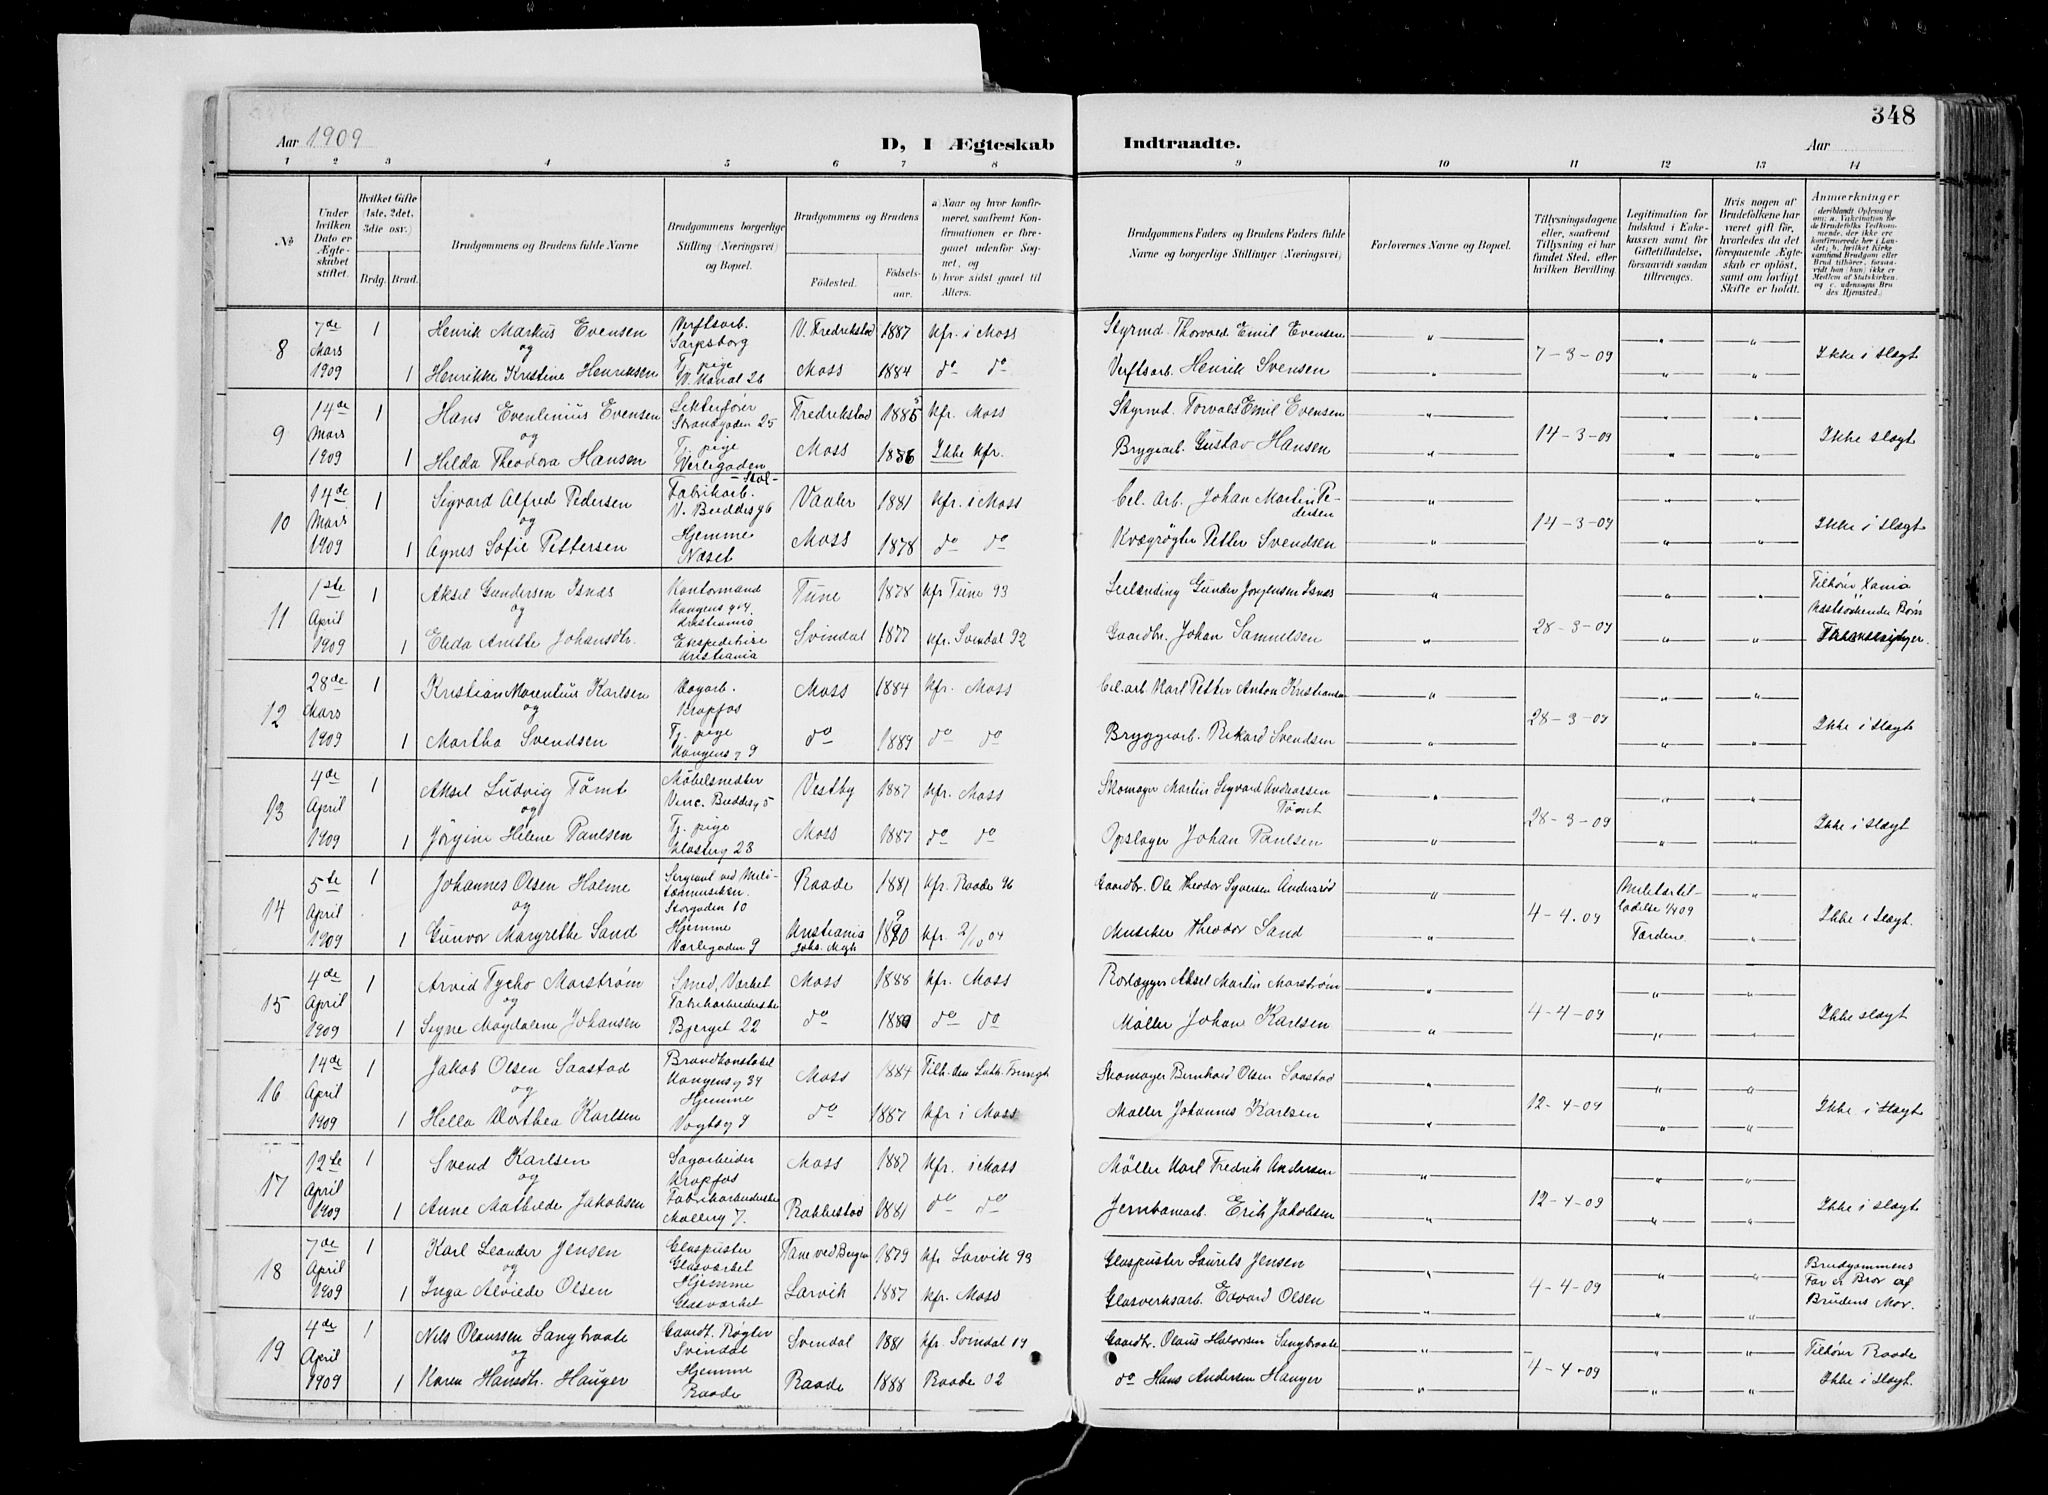 348
Aar 1909 D, I Ægteskab Indtraadte. Aar
1 2 3 4 5 6 7 8 9 10 11 12 13 14
No
Under hvilken Dato er Ægteskabet stiftet.
Hvilket Gifte (1ste, 2det, 3die osv.)
Brdg. Brud.
Brudgommens og Brudens fulde Navne
Brudgommens borgerlige Stilling (Næringsvei) og Bopæl.
Brudgommens og Brudens
Fødested. Fødselsaar.
a) Naar og hvor konfirmeret, saafremt Konfirmationen er foregaaet udenfor Sognet, og
b) hvor sidst gaaet til Alters.
Brudgommens Faders og Brudens Faders fulde Navne og borgerlige Stillinger (Næringsvei)
Forlovernes Navne og Bopæl.
Tillysningsdagene eller, saafremt Tillysning ei har fundet Sted, efter hvilken Bevilling
Legitimation for Indskud i Enkekassen samt for Giftetilladelse, forsaavidt saadan tiltrænges.
Hvis nogen af Brudefolkene har været gift før, hvorledes da det foregaaende Ægteskab er opløst, samt om lovligt Skifte er holdt.
Anmerkninger
8 7de Mars 1909 1 Henrik Markus Evensen Verftsarb. Sarpsborg V. Fredrikstad 1887 Kfr. i Moss Styrmd. Thorvald Emil Evensen
og 7-3-09 Ikke i slægt
1 Henrikke Kristine Henriksen Tj. pige V. Kanal 26 Moss 1884 do do Verftsarb. Henrik Svensen
9 14de Mars 1909 1 Hans Evenlinius Evensen Lekterfører Strandgaden 25 Fredrikstad 1885 Kfr. Moss Styrmd. Torvald Emil Evensen
og 14-3-09 Ikke slægt
1 Hilda Theodora Hansen Tj. pige Verlegaden Moss 1886 Ikke Kfr. Bryggearb. Gustav Hansen
10 14de Mars 1909 1 Sigvard Alfred Pedersen Fabrikarb. V. Buddesg 6 Vaaler 1881 Kfr. i Moss Cel. arb. Johan Martin Pedersen
og 14-3-09 Ikke i slægt
1 Agnes Sofie Pettersen Hjemme Næset Moss 1878 do do Kvægrøgter Petter Svendsen
11 1ste April 1909 1 Aksel Gundersen Isnæs Kontormand Kongens g 4. Kristiania Tune 1878 Kfr Tune 93 Gunder Jørgensen Isnæs
og 28-3-09 Tilhører Xania
1 Elida Anette Johansdtr. Ekspeditrise Kristiania Svindal 1877 Kfr. Svindal 92 Gaardbr. Johan Samuelsen
12 28de Mars 1909 1 Kristian Marentius Karlsen Sagarb. Krapfos Moss 1884 Kfr. Moss Cel. arb Karl Petter Anton Kristiansen
og 28-3-09 Ikke i Slægt
1 Martha Svendsen Tj. pige Kongens g 9 do 1889 do do Bryggearb. Rikard Svendsen
13 4de April 1909 1 Aksel Ludvig Tømt Møbelsnedker Vinc. Buddesg 5 Vestby 1887 Kfr. Moss Skomager Martin Sigvard Andreassen Tømt
og 28-3-09 Ikke i slægt
1 Jørgine Helene Paulsen Tj. pige Klosterg 23 Moss 1887 do do Opslager Johan Paulsen
14 5te April 1909 1 Johannes Olsen Holme Sergeant ved Militærmusikken. Storgaden 10 Raade 1881 Kfr. Raade 96 Gaardbr. Ole Theodor Syversen
og 4-4-09 Militærtilladelse 1/4 09 Ikke i Slægt
1 Gunvor Margrethe Sand Hjemme Værlegaden 9 Kristiania Kfr. 2/10 04 Theodor Sand
15 4de April 1909 1 Arvid Tycho Marstrøm Smed, Værket Moss 1888 Kfr. Moss Rorlægger Aksel Martin Marstrøm
og 4-4-09 Ikke slægt
1 Signe Magdalene Johansen Fabrikarbeiderske Bjerget 22 do do do Møller Johan Karlsen
16 14de April 1909 1 Jakob Olsen Saastad Brandkonstabel Kongens g 34 Moss 1884 Tilh. den Luth. Frimgh Skomager Bernhard Olsen Saastad
og 12-4-09 Ikke i Slægt
1 Helle Dorthea Karlsen Hjemme Vogtsg 9 do 1887 Kfr i Moss Møller Johannes Karlsen
17 12te April 1909 1 Svend Karlsen Sagarbeider Krapfos Moss 1887 Kfr. i Moss Møller Karl Fredrik Andersen
og 12-4-09 Ikke i slægt
1 Anne Mathilde Jakobsen Fabrikarbeiderske Møllerg 7. Rakkestad 1881 do do Jernbanearb. Erik Jakobsen
18 7de April 1909 1 Karl Leander Jensen Glaspuster Glasværket Fane ved Bergen 1879 Kfr Larvik 93 Glaspuster Laurits Jensen
og 4-4-09 Brudgommens Far er Bror af Brudens Mor.
1 Inga Alvilde Olsen Hjemme Glasværket Larvik 1887 Kfr. Moss Glasverksarb. Edvard Olsen
19 4de April 1909 1 Nils Olaussen Langbraate Gaardt. Røgter Svindal Svendal 1881 Kfr. Svindal Gaardbr. Olaus Halvorsen Langbraate
og 4-4-09 Tilhører Raade Ikke i Slægt.
1 Karen Hansdtr. Hauger Hjemme Raade Raade 1888 Raade 02 do Hans Andersen Hauger